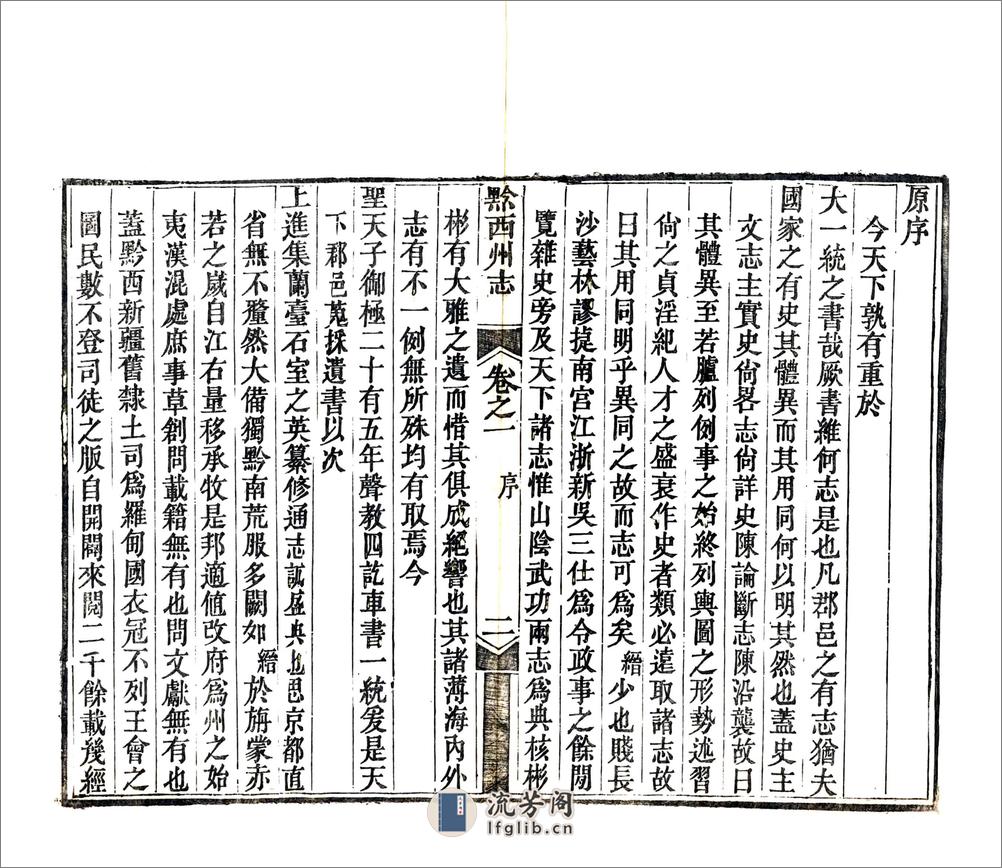 原序
今天下孰有重於
大一統之書哉厥書維何志是也凡郡邑之有志猶夫
國家之有史其體異而其用同何以明其然也蓋史主
文志主實史尚畧志尚詳史陳論斷志陳沿襲故曰
其體異至若臚列例事之始終列輿圖之形勢述習
尚之貞淫紀人才之盛衰作史者類必遠取諸志故
曰其用同明乎異同之故而志可為矣縉少也賤長
沙藝林謬提南宮江浙新吳三仕為令政事之餘閒
覽雜史旁及天下諸志惟山陰武功兩志為典核彬
黔西州志 卷之一 序 二
彬有大雅之遺而惜其俱成絕響也其諸薄海內外
志有不一例無所殊均有取焉今
聖天子御極二十有五年聲教四訖車書一統爰是天
下郡邑蒐採遺書以次
上進集蘭臺石室之英纂修通志誠盛典也思京都直
省無不釐然大備獨黔南荒服多闕如縉於旃蒙赤
若之歲自江右量移承牧是邦適值改府為州之始
夷漢混處庶事草創問載籍無有也問文獻無有也
蓋黔西新疆舊隸土司為羅甸國衣冠不列王會之
圖民數不登司徒之版自開闢來閱二千餘載幾經
流芳阁
lfglib.cn